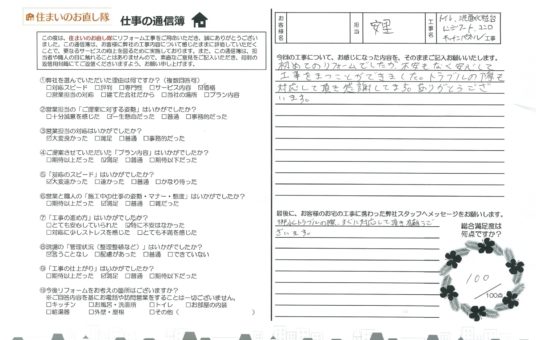 住まいのお直し隊
仕事の通信簿
この度は、住まいのお直し隊にリフォーム工事をご用命いただき、誠にありがとうございま
した。この通信簿は、お客様に弊社の工事内容について感じたままに評価していただく
ことで、更なるサービスの向上を図るために実施しております。また、この通信簿は、担
①弊社を選んでいただいた理由は何ですか？（複数回答可）
□対応スピード □評判 □専門性 □サービス内容 ☑価格
□営業担当の対応 □建てた会社だから □当社の場所 □プラン内容
②営業担当の「ご提案に対する姿勢」はいかがでしたか？
□十分誠意を感じた □一生懸命だった □普通 □事務的だった
③営業担当の対応はいかがでしたか？
☑大変良かった □満足 □普通 □事務的だった
④ご提案させていただいた「プラン内容」はいかがでしたか？
□期待以上だった ☑満足 □普通 □期待以下だった
⑤「対応のスピード」はいかがでしたか？
☑大変速かった □速かった □普通 □かなり待った
⑥営業と職人の「施工中の仕事の姿勢・マナー・態度」はいかがでしたか？
□期待以上だった ☑満足 □普通 □雑だった
⑦「工事の進め方」はいかがでしたか？
□とても安心していられた ☑特に不安はなかった
□対応に少しストレスを感じた □とても不満を感じた
⑧現場の「管理状況（整理整頓など）」はいかがでしたか？
☑言うことなし □配慮があった □普通 □できていない
⑨「工事の仕上がり」はいかがでしたか？
□期待以上だった ☑満足 □普通 □期待以下だった
⑩今後リフォームをお考えの箇所はございますか？
※ご回答内容を基にお電話や訪問営業をすることは一切ございません。
□キッチン □お風呂・洗面所 □トイレ □お部屋の内装
□給湯器 □外壁・屋根 □その他（ ）
お客様名
担当
安里
工事名
トイレ、洗面化粧台
今回の工事について、お感じになった内容を、そのままご記入お願いいたします。
初めてのリフォームでしたが不安もなく安心して
工事をまつことができました。トラブルの際も
対応して頂き感謝してます。ありがとうござ
います。
最後に、お客様のお宅の工事に携わった弊社スタッフへメッセージをお願いします。
ざいます。
総合満足度は
何点ですか？
100
/100点